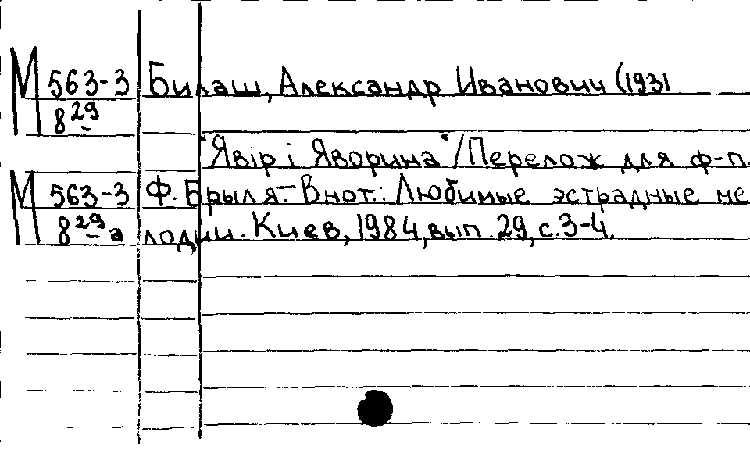 М 563-3 Билаш, Александр Иванович (1931
8 29
"Явір і Яворина"/Перелож для ф-п.
М 563-3 Ф. Брыля.- В нот.: Любимые эстрадные ме
8 29-а лодии. Киев, 1984, вып. 29, с. 3-4.